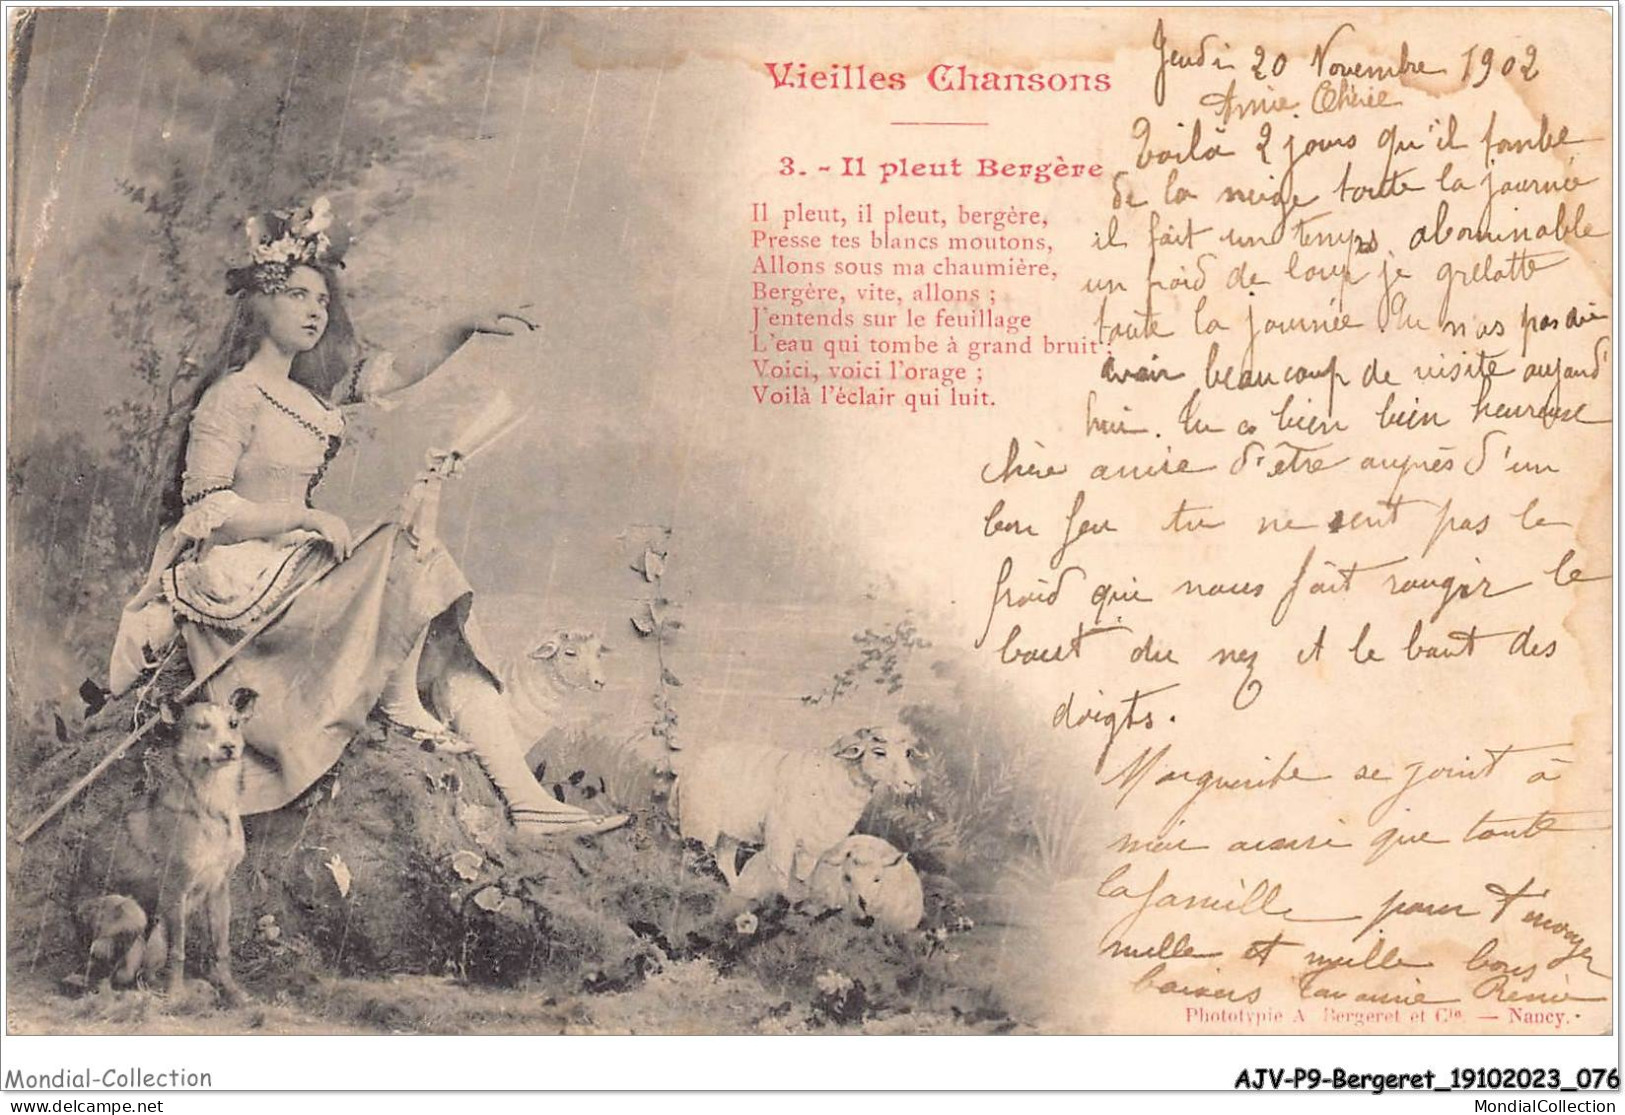 Vieilles Chansons
3. - Il pleut Bergère
Il pleut, il pleut, bergère,
Presse tes blancs moutons,
Allons sous ma chaumière,
Bergère, vite, allons ;
J'entends sur le feuillage
L'eau qui tombe à grand bruit ;
Voici, voici l'orage ;
Voilà l'éclair qui luit.
Jeudi 20 Novembre 1902
Amie Chérie
Voilà 2 jours qu'il tombe
de la neige toute la journée
il fait un temps abominable
un froid de loup je grelotte
toute la journée Tu n'as pas dû
avoir beaucoup de visite aujourd'
hui. Tu a bien bien heureuse
chère amie d'être auprès d'un
bon feu tu ne sent pas le
froid qui nous fait rougir le
bout du nez et le bout des
doigts.
Marguerite se joint à
moi aussi que toute
la famille pour t'envoyer
mille et mille bons
baisers Ton amie
Phototypie A. Bergeret et Cie. — Nancy.
Mondial-Collection
AJV-P9-Bergeret_19102023_076
MondialCollection
https://www.delcampe.net/fr/collections/store/MondialCollection